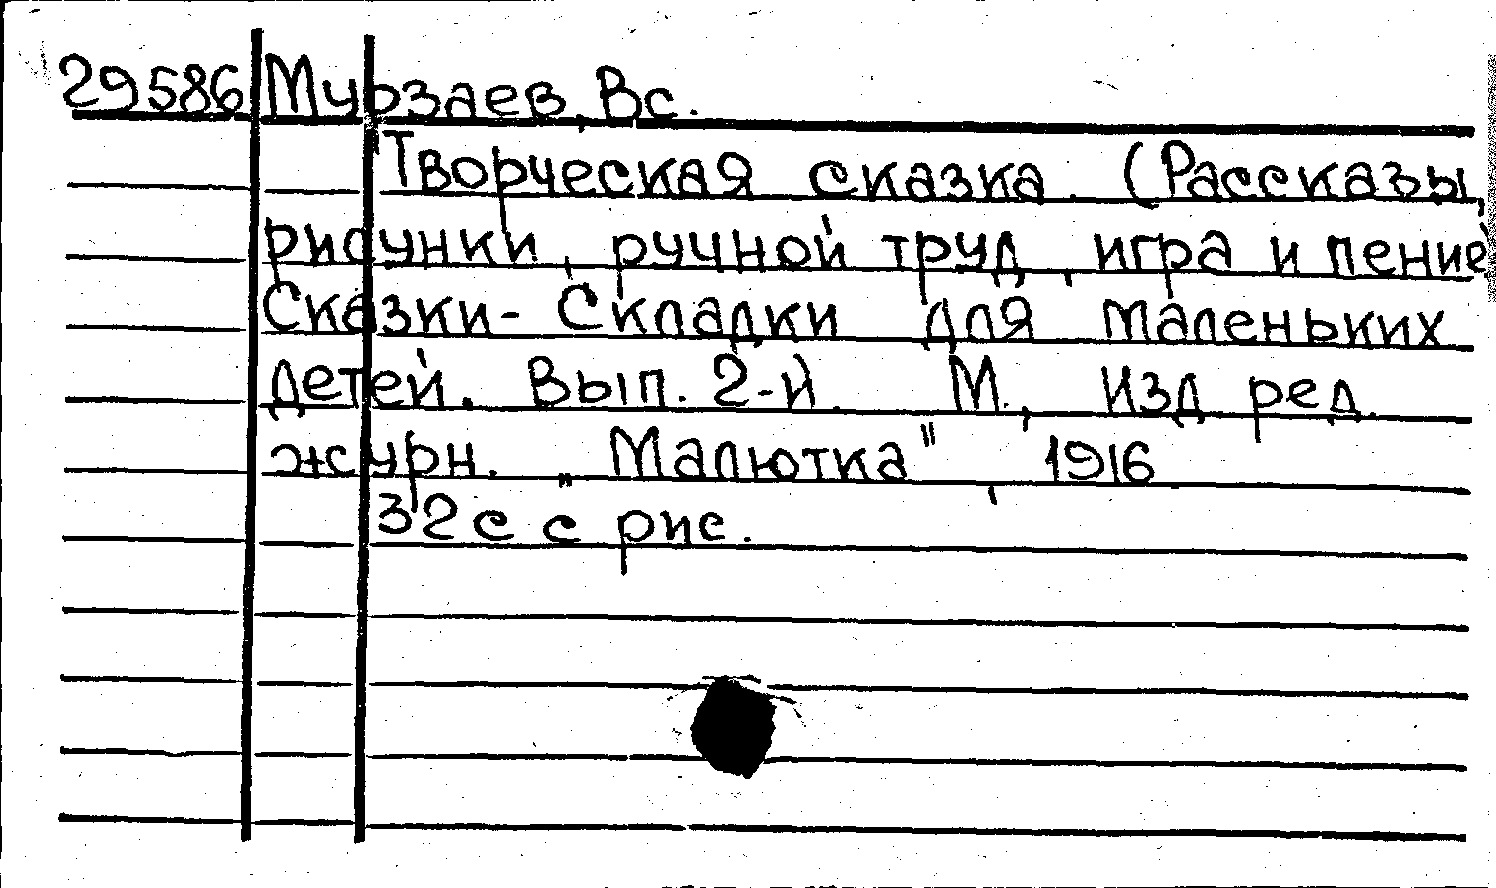 29586 Мурзаев, Вс.
Творческая сказка. (Рассказы,
рисунки, ручной труд, игра и пение)
Сказки-Складки для маленьких
детей. Вып. 2-й. М., Изд ред.
журн. „Малютка", 1916
32 с с рис.